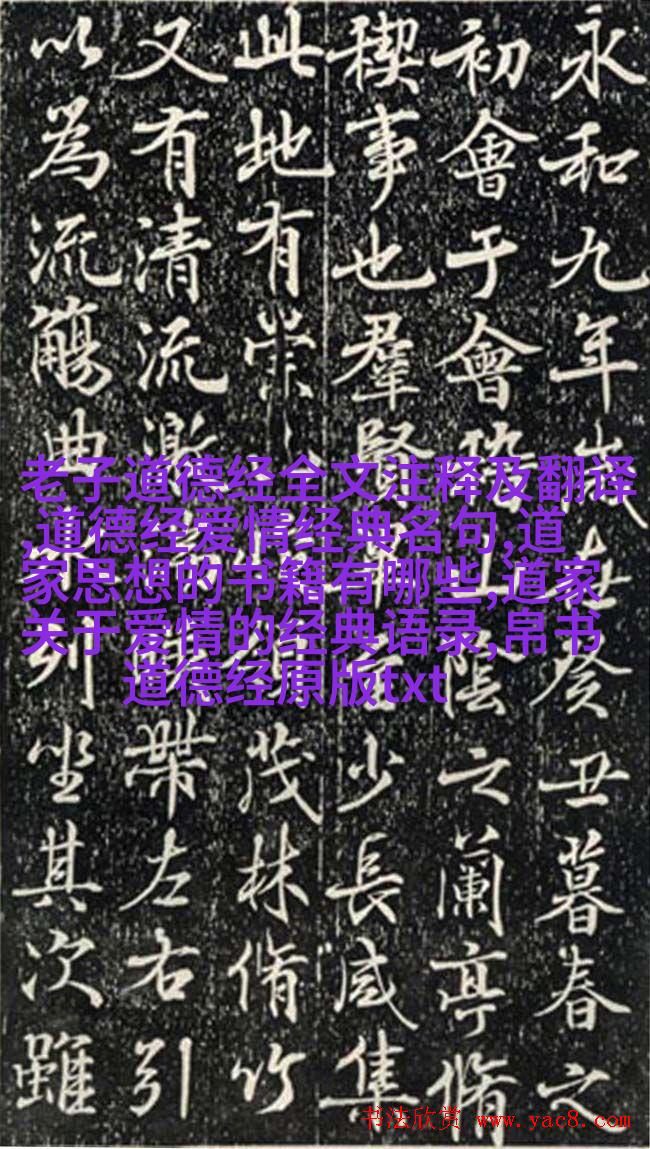 永和九年歲在癸丑暮春之
初會于會山陰之蘭亭脩
稧事也羣賢至少長咸集
此地有崇茂林脩竹
又有清流激暎帶左右引
以為流觴曲列坐其次雖
老子道德经全文注释及翻译
,道德经爱情经典名句,道
家思想的书籍有哪些,道家
关于爱情的经典语录,帛书
道德经原版txt
书法欣赏 www.yac8.com